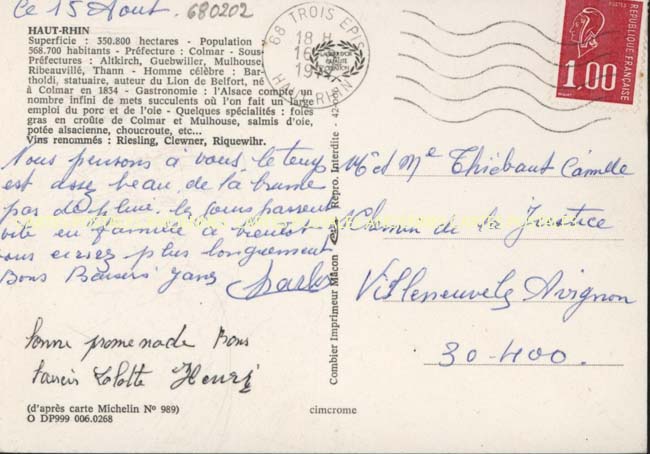 Ce 15 Aout. 680202
HAUT-RHIN
Superficie : 350.800 hectares - Population
568.700 habitants - Préfecture : Colmar - Sous-
Préfectures : Altkirch, Guebwiller, Mulhouse,
Ribeauvillé, Thann - Homme célèbre : Bar-
tholdi, statuaire, auteur du Lion de Belfort, né
à Colmar en 1834 - Gastronomie : l'Alsace compte un
nombre infini de mets succulents où l'on fait un large
emploi du porc et de l'oie - Quelques spécialités : foies
gras en croûte de Colmar et Mulhouse, salmis d'oie,
potée alsacienne, choucroute, etc...
Vins renommés : Riesling, Clewner, Riquewihr.
Nous pensons à vous. le temps
est assez beau, de la brume
pas de pluie. le temps passe
vite en famille à bientôt
vous plus longuement
Bons Baisers
Charles
bonne promenade Bons
baisers Lolotte Henri
(d'après carte Michelin Nº 989)
O DP999 006.0268
Combier Imprimeur Macon Repro. Interdite - 42
cimcrome
68 TROIS EPIS
18 H
16
19
HT RHIN
POSTES
1,00
RÉPUBLIQUE FRANÇAISE
M et Me Thiébaut Camille
Chemin de la Justice
Villeneuve Avignon
30-400.